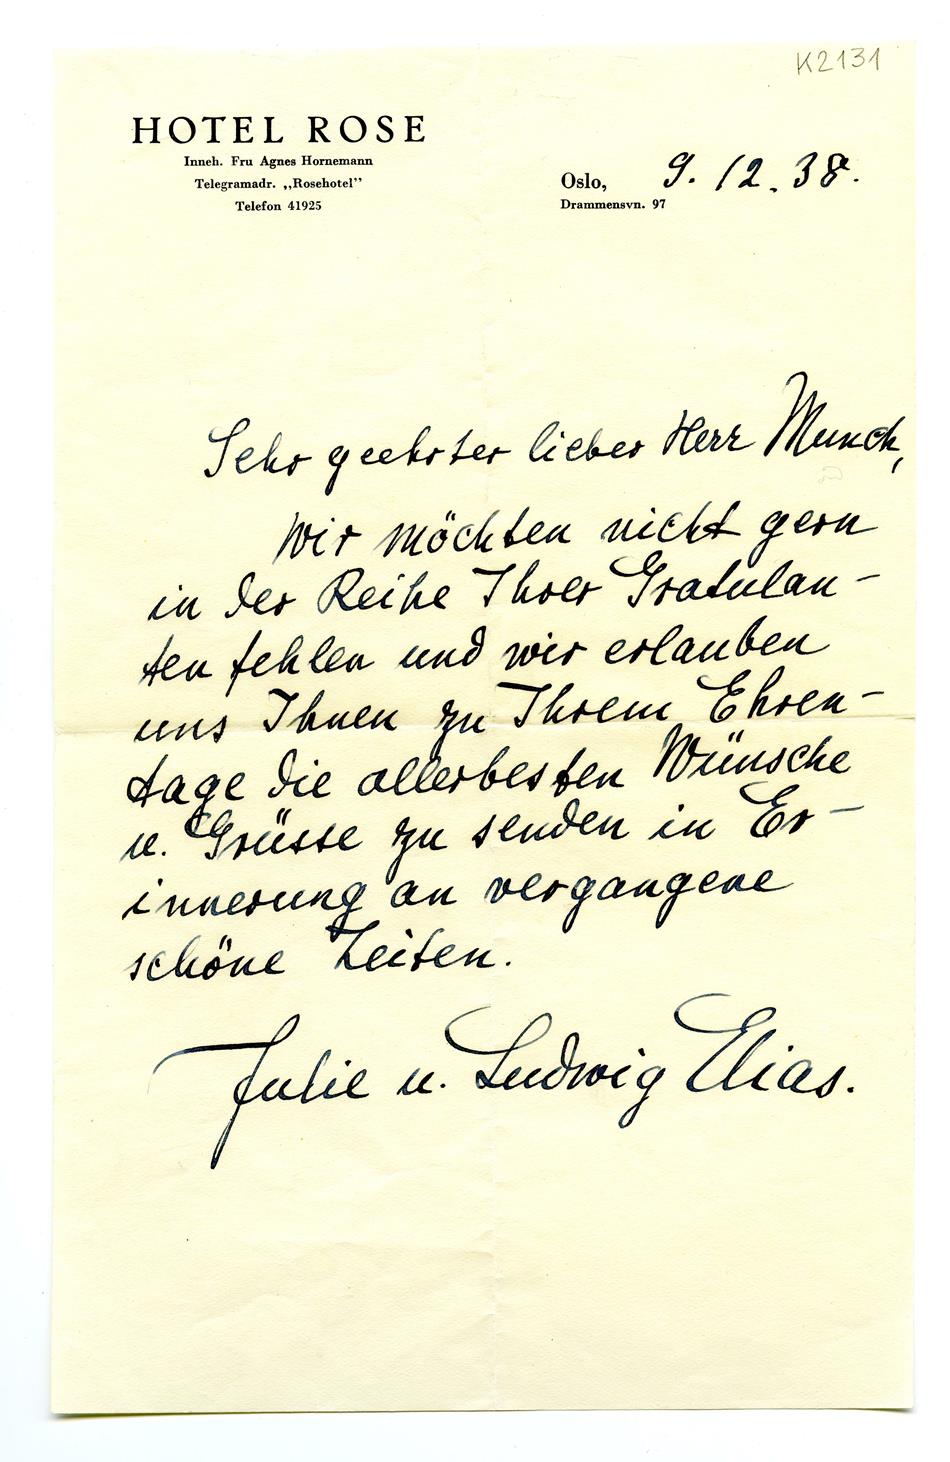 K2131
HOTEL ROSE
Inneh. Fru Agnes Hornemann
Telegramadr. „Rosehotel”
Telefon 41925
Oslo, 9. 12. 38.
Drammensvn. 97
Sehr geehrter lieber Herr Munch,
Wir möchten nicht gern
in der Reihe Ihrer Gratulan-
ten fehlen und wir erlauben
uns Ihnen zu Ihrem Ehren-
tage die allerbesten Wünsche
u. Grüsse zu senden in Er-
innerung an vergangene
schöne Zeiten.
Julie u. Ludwig Elias.